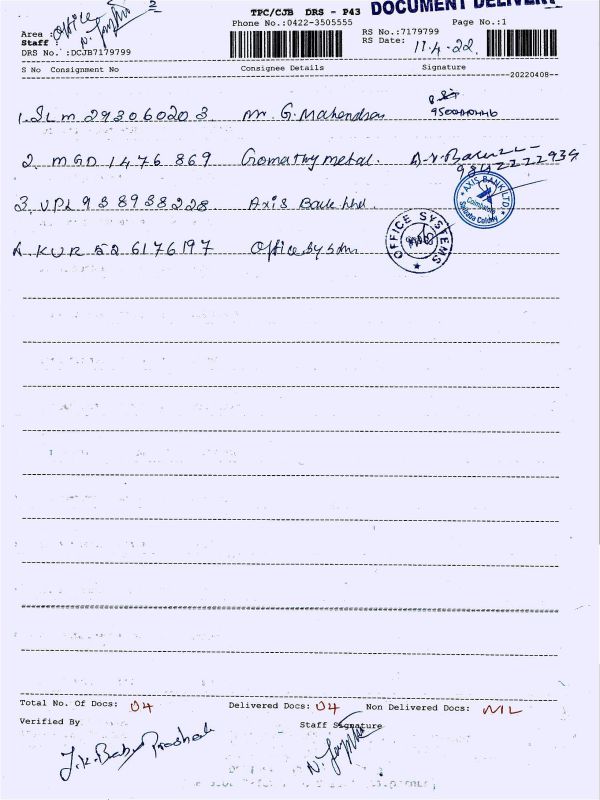 TPC/CJB DRS - P43
DOCUMENT DELIVERY
Phone No.:0422-3505555
Page No.:1
Area : Office
Staff :
DRS No. :DCJB7179799
RS No.:7179799
RS Date: 11.4.22.
S No Consignment No Consignee Details Signature
20220408
1. SLM 293060203 Mr. G. Mahendran
2. MGD 1476869 Gomathy metal.
3. VPL 938938228 Axis Bank Ltd.
AXIS BANK LTD. Coimbatore
4. KUR 526176197 Office System
OFFICE SYSTEMS
Total No. Of Docs: 04 Delivered Docs: 04 Non Delivered Docs: NIL
Verified By Staff Signature